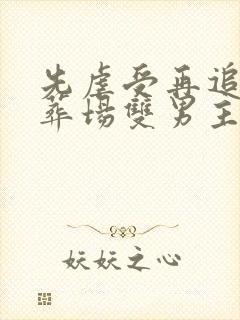 先虐受再追
葬場雙男主
妖妖之心